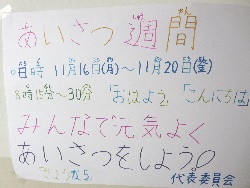 あいさつ週間
日時 11月16日(月)～11月20日(金)
8時15分～30分 「おはよう」「こんにちは」
みんなで元気よく
あいさつをしよう。
さようなら 代表委員会